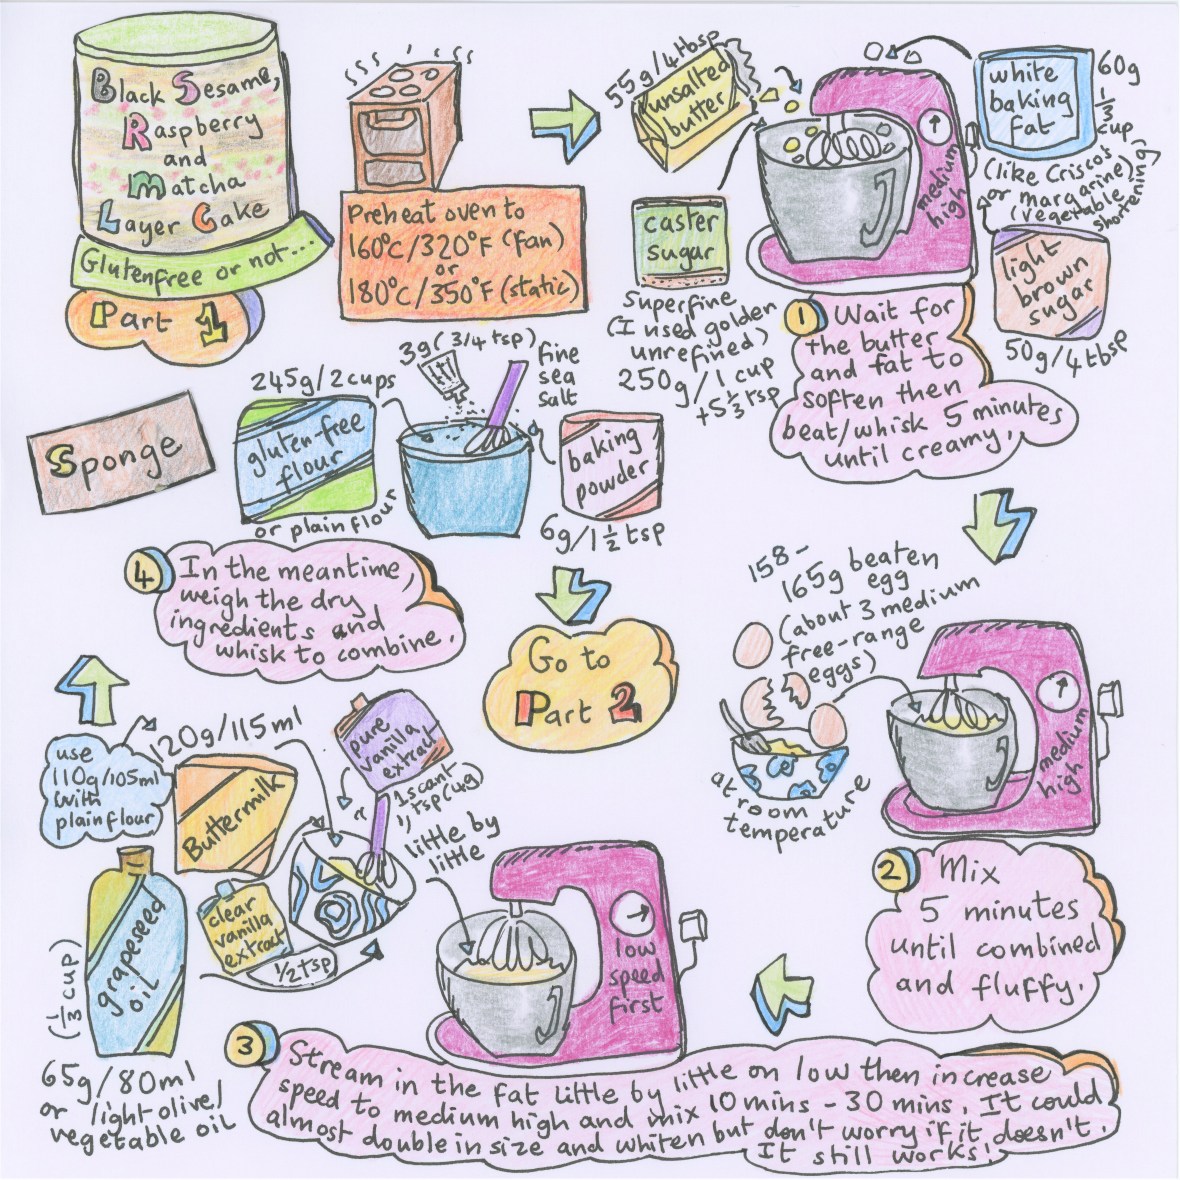 Black Sesame,
Raspberry
and
Matcha
Layer Cake
Glutenfree or not...
Part 1
Preheat oven to
160°C/320°F (fan)
or
180°C/350°F (static)
55g/4tbsp
unsalted
butter
medium
high
white
baking
fat
60g
1/3
cup
(like Criscos
or margarine)
(vegetable
shortening)
caster
sugar
superfine
(I used golden
unrefined)
250g/1 cup
+5 1/3 tsp
light
brown
sugar
50g/4tbsp
1 Wait for
the butter
and fat to
soften then
beat/whisk 5 minutes
until creamy.
Sponge
245g/2cups
gluten-free
flour
or plain flour
3g (3/4 tsp)
fine
sea
salt
baking
powder
6g/1 1/2 tsp
4 In the meantime,
weigh the dry
ingredients and
whisk to combine.
Go to
Part 2
158-
165g beaten
egg
(about 3 medium
free-range
eggs)
at room
temperature
medium
high
2 Mix
5 minutes
until combined
and fluffy.
use
110g/105ml
with
plain flour
120g/115ml
Buttermilk
pure
vanilla
extract
1 scant
tsp (4g)
clear
vanilla
extract
1/2 tsp
little by
little
low
speed
first
grapeseed
oil
(1/3 cup)
65g/80ml
or light olive/
vegetable oil
3 Stream in the fat little by little on low then increase
speed to medium high and mix 10 mins - 30 mins. It could
almost double in size and whiten but don't worry if it doesn't.
It still works!